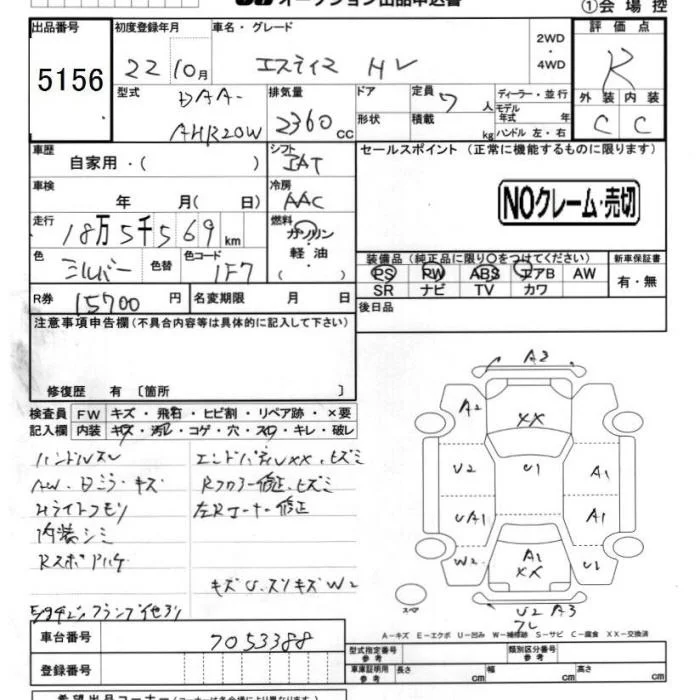 オークション出品申込書
①会場控
出品番号
5156
初度登録年月
22 10月
車名・グレード
エスティマ HV
2WD
・
4WD
評価点
R
外装 内装
C C
型式
DAA-
AHR20W
排気量
2360 cc
ドア
形状
定員 7 人
積載 kg
ディーラー・並行
モデル
年式 年
ハンドル 左・右
車歴
自家用・( )
シフト
IAT
車検
年 月( 日)
冷房
AAC
走行
18万5千569 km
燃料
ガソリン
軽油
( )
色
シルバー
色替
色コード
1F7
R券 15700 円
名変期限 月 日
セールスポイント (正常に機能するものに限ります)
NOクレーム・売切
装備品 (純正品に限り○をつけてください)
PS PW ABS エアB AW
SR ナビ TV カワ
新車保証書
有・無
後日品
注意事項申告欄(不具合内容等は具体的に記入して下さい)
修復歴 有 〔箇所 〕
検査員
記入欄
FW キズ・飛石・ヒビ割・リペア跡・×要
内装 キズ・汚レ・コゲ・穴・スレ・キレ・破レ
ハンドルスレ
AW・日ニラ・キズ
Hライトクモリ
内装シミ
Rスポハゲ
エンドパネルXX、ヒズミ
Rフロアー修正、ヒズミ
左Rコーナー修正
キズU・スリキズW2
A3
A2
XX
U2
U1
A1
UA1
A1
W2
A1
XX
U1
U2 A3
スペア
A－キズ E－エクボ U－凹み W－補修跡 S－サビ C－腐食 XX－交換済
車台番号
7053388
登録番号
型式指定番号
参考
類別区分番号
参考
車庫証明用
参考
長さ cm
幅 cm
高さ cm
希望出品コーナー